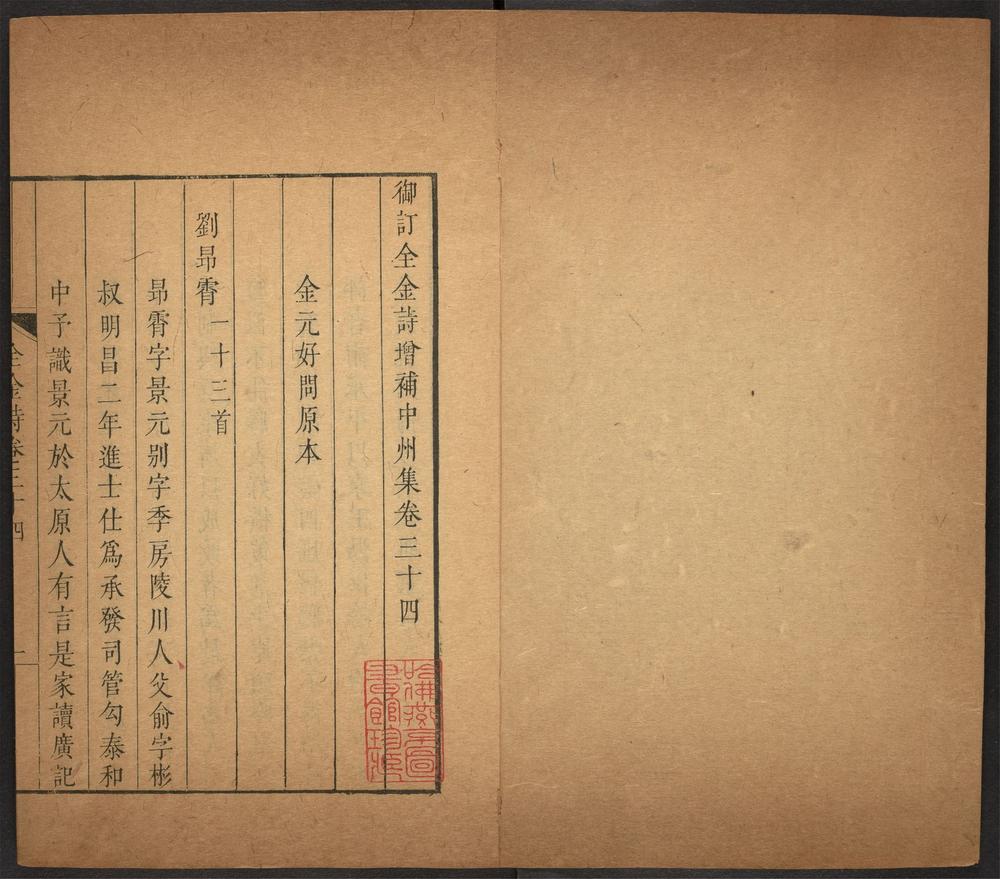 御訂全金詩增補中州集卷三十四
金元好問原本
劉昂霄一十三首
昂霄字景元别字季房陵川人父俞字彬
叔明昌二年進士仕爲承發司管勾泰和
中子識景元於太原人有言是家讀廣記
全金詩卷三十四
一
哈佛燕京圖
書館珍藏